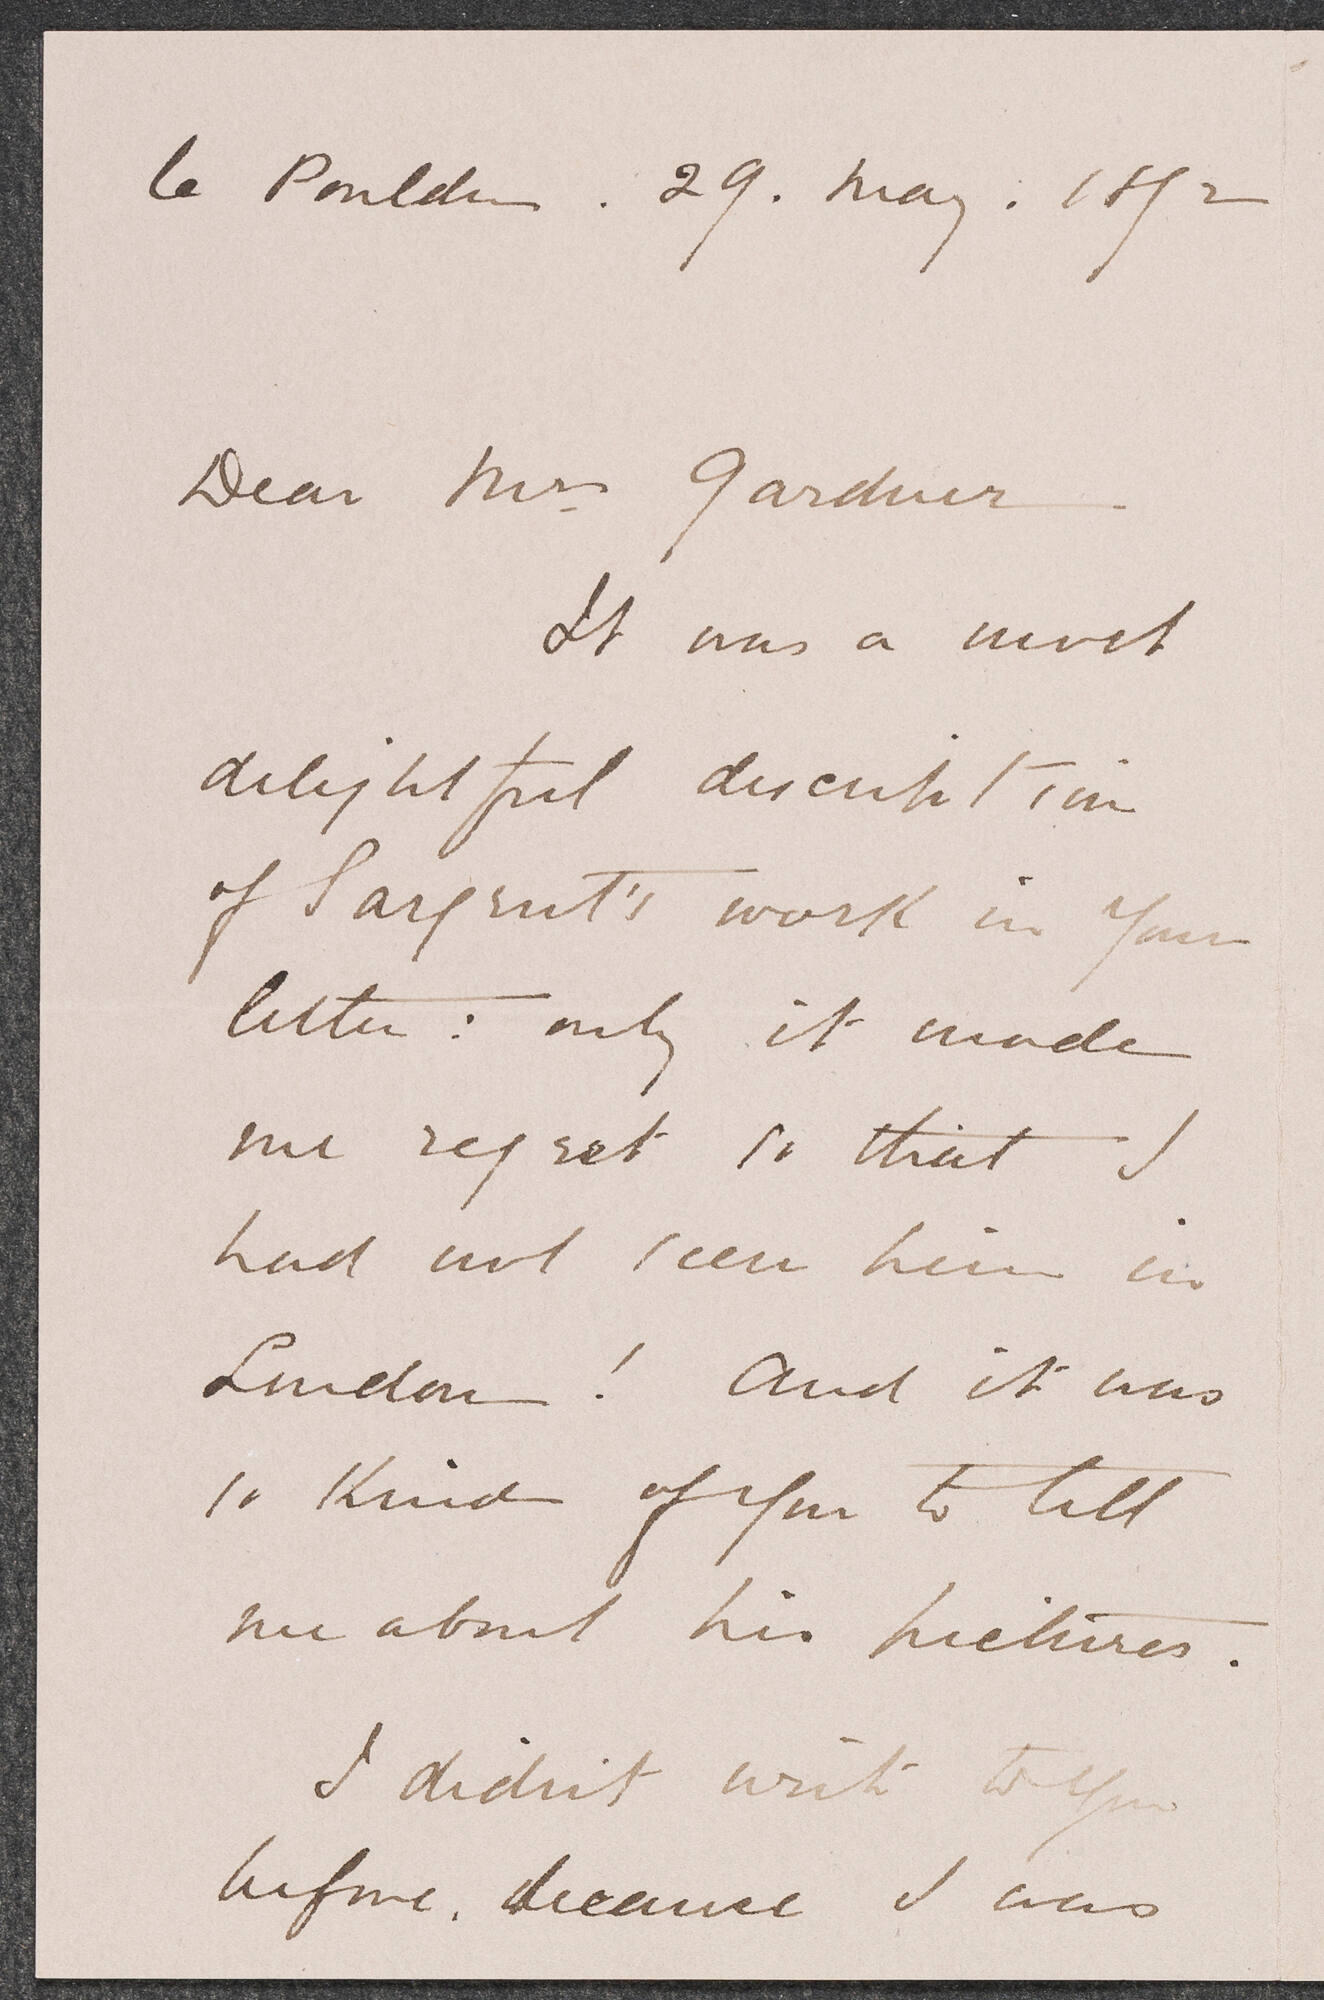 le Pouldu . 29 . May . 1892
Dear Mrs Gardner
It was a most
delightful description
of Sargent's work in your
letter : only it made
me regret so that I
had not seen him in
London ! And it was
so kind of you to tell
me about his pictures .
I didn't write to you
before , because I was